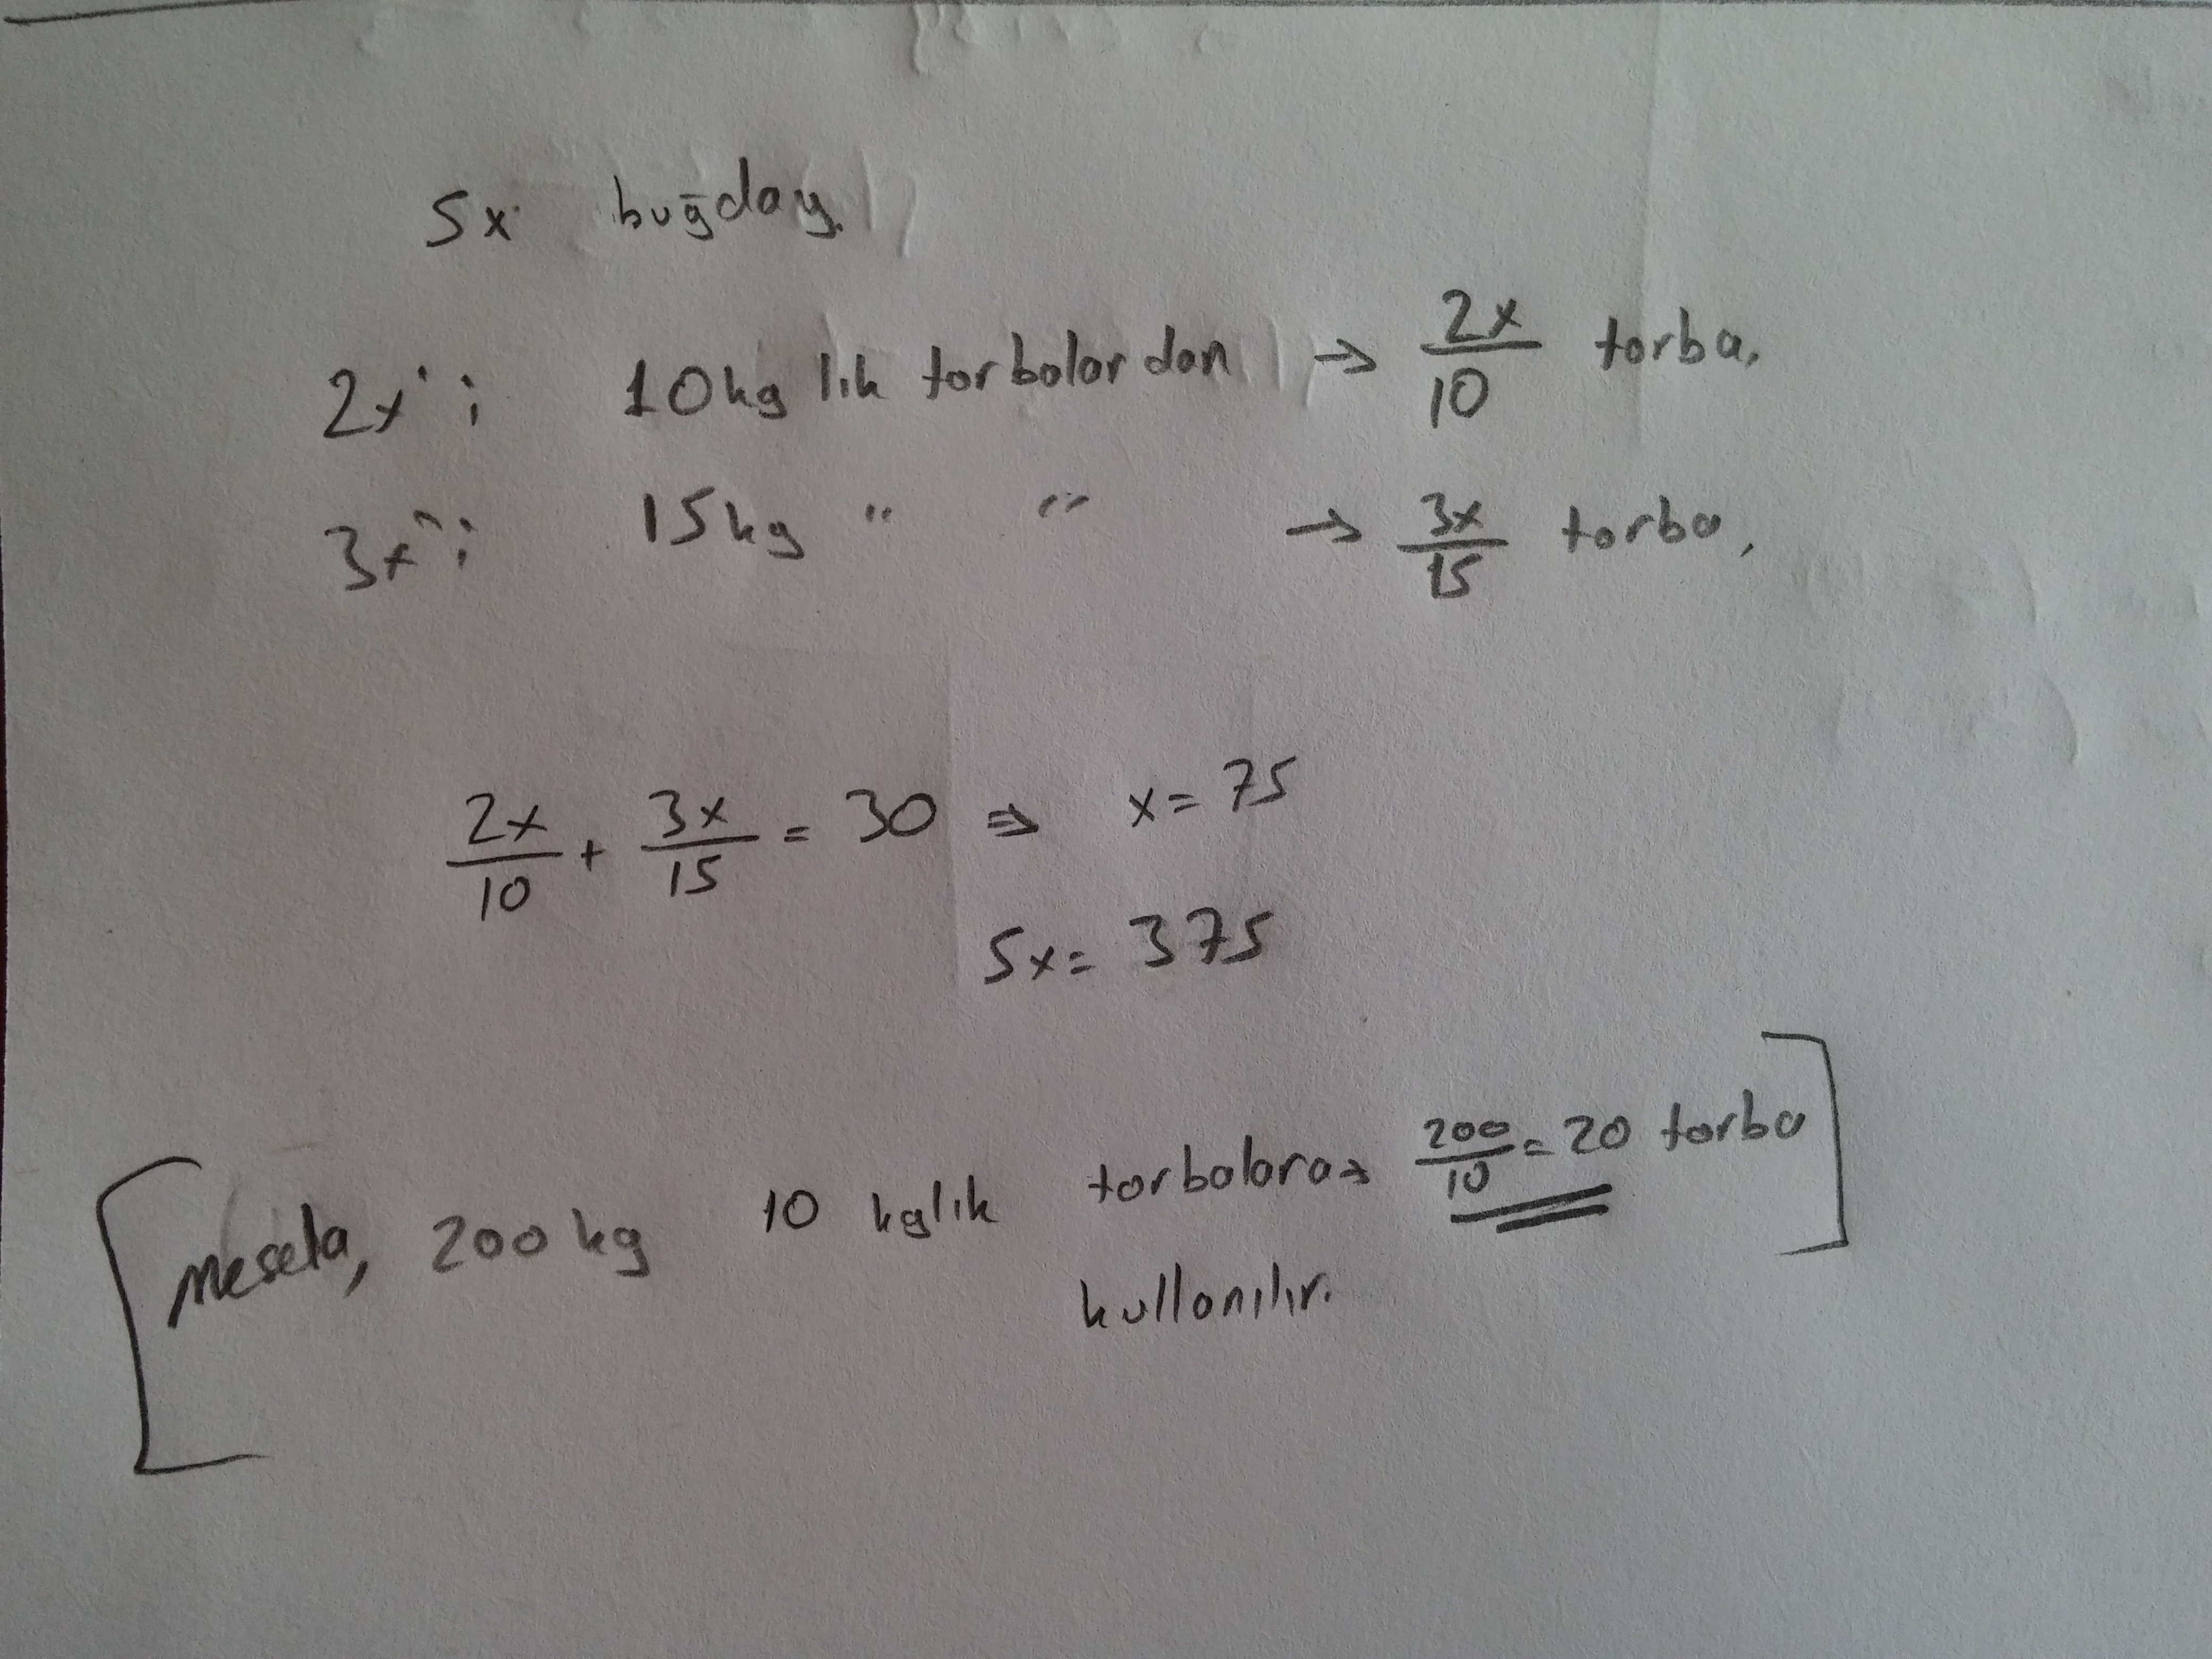 5x buğday.
2x'i 10kg lık torbalardan → 2x/10 torba.
3x'i 15kg " " → 3x/15 torba.
2x/10 + 3x/15 = 30 ⇒ x = 75
5x = 375
[Mesela, 200 kg 10 kglık torbalara → 200/10 = 20 torba]
kullanılır.